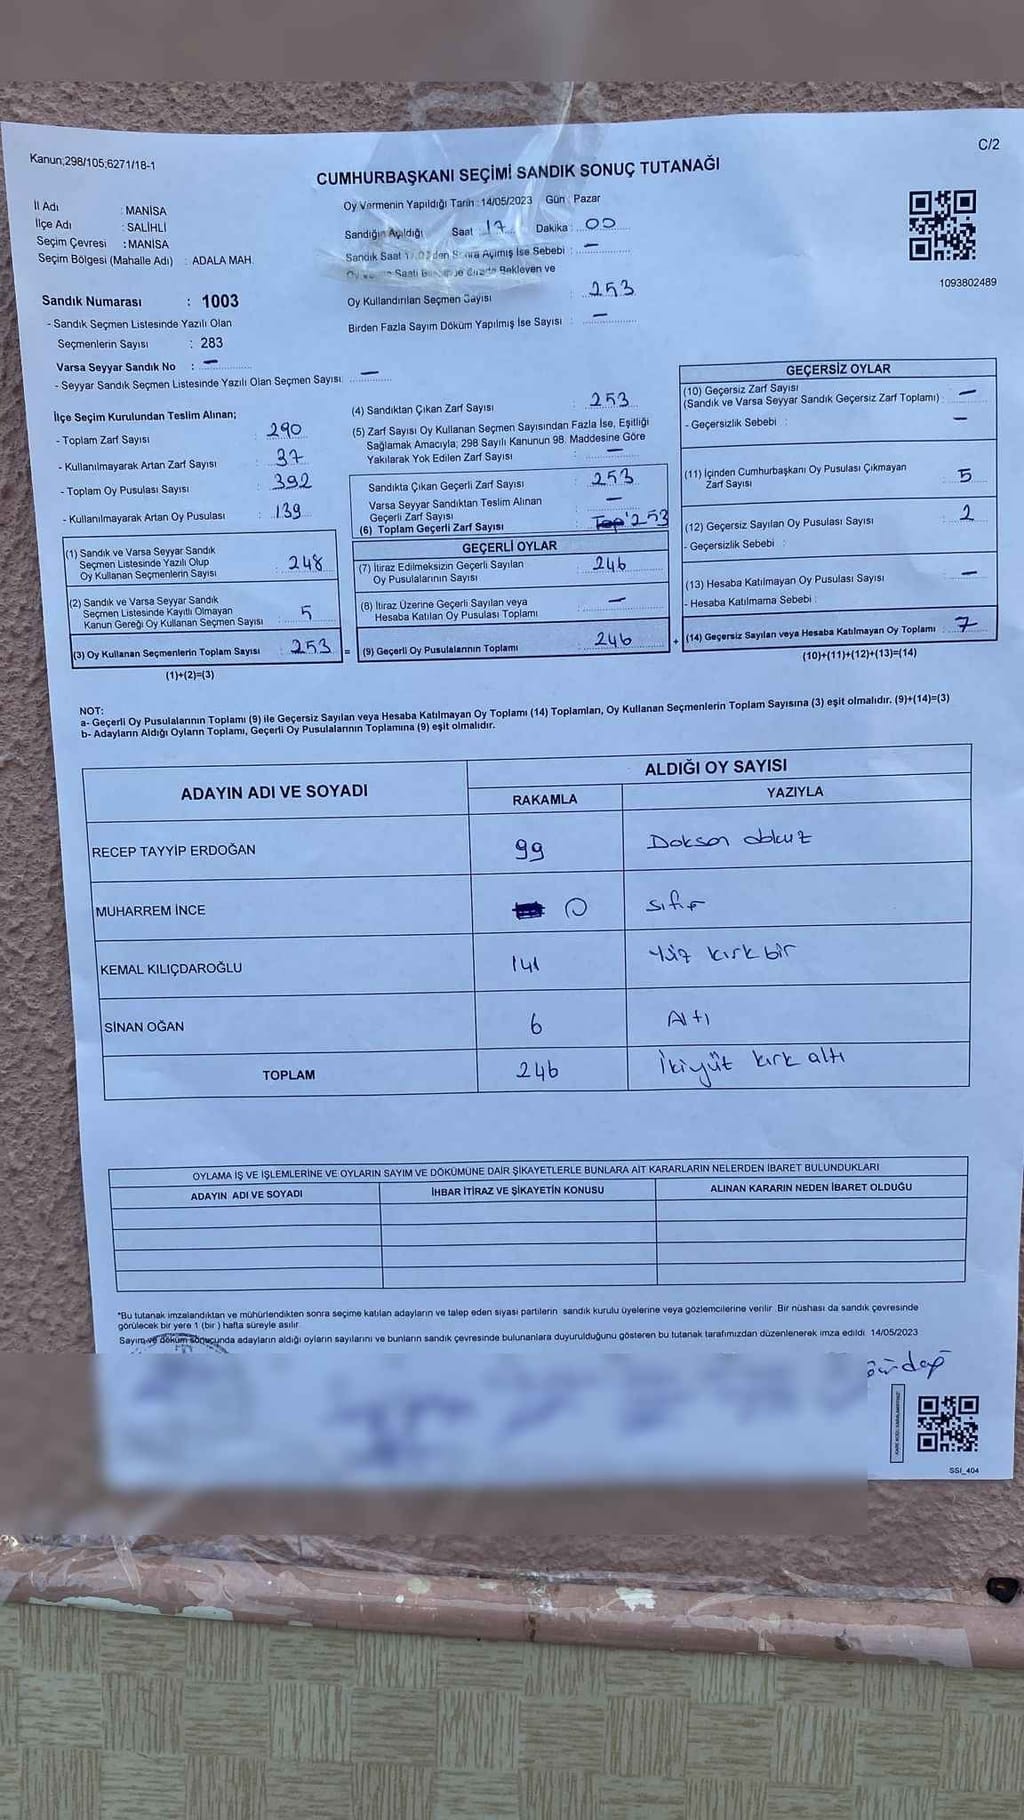 C/2
Kanun;298/105;6271/18-1
CUMHURBAŞKANI SEÇİMİ SANDIK SONUÇ TUTANAĞI
İl Adı : MANİSA
İlçe Adı : SALİHLİ
Seçim Çevresi : MANİSA
Seçim Bölgesi (Mahalle Adı) : ADALA MAH.
Oy Vermenin Yapıldığı Tarih : 14/05/2023 Gün : Pazar
Sandığın Açıldığı Saat : 17 Dakika : 00
Sandık Saat 17.00'den Sonra Açımış İse Sebebi : –
Oy Saati Bekleyen ve
Oy Kullandırılan Seçmen Sayısı : 253
Birden Fazla Sayım Döküm Yapılmış İse Sayısı : –
1093802489
Sandık Numarası : 1003
- Sandık Seçmen Listesinde Yazılı Olan
Seçmenlerin Sayısı : 283
Varsa Seyyar Sandık No : –
- Seyyar Sandık Seçmen Listesinde Yazılı Olan Seçmen Sayısı : –
İlçe Seçim Kurulundan Teslim Alınan;
- Toplam Zarf Sayısı : 290
- Kullanılmayarak Artan Zarf Sayısı : 37
- Toplam Oy Pusulası Sayısı : 392
- Kullanılmayarak Artan Oy Pusulası : 139
(1) Sandık ve Varsa Seyyar Sandık
Seçmen Listesinde Yazılı Olup
Oy Kullanan Seçmenlerin Sayısı : 248
(2) Sandık ve Varsa Seyyar Sandık
Seçmen Listesinde Kayıtlı Olmayan
Kanun Gereği Oy Kullanan Seçmen Sayısı : 5
(3) Oy Kullanan Seçmenlerin Toplam Sayısı : 253 =
(1)+(2)=(3)
(4) Sandıktan Çıkan Zarf Sayısı : 253
(5) Zarf Sayısı Oy Kullanan Seçmen Sayısından Fazla İse, Eşitliği
Sağlamak Amacıyla; 298 Sayılı Kanunun 98. Maddesine Göre
Yakılarak Yok Edilen Zarf Sayısı : –
Sandıkta Çıkan Geçerli Zarf Sayısı : 253
Varsa Seyyar Sandıktan Teslim Alınan
Geçerli Zarf Sayısı : –
(6) Toplam Geçerli Zarf Sayısı : 253
GEÇERLİ OYLAR
(7) İtiraz Edilmeksizin Geçerli Sayılan
Oy Pusulalarının Sayısı : 246
(8) İtiraz Üzerine Geçerli Sayılan veya
Hesaba Katılan Oy Pusulası Toplamı : –
(9) Geçerli Oy Pusulalarının Toplamı : 246 +
GEÇERSİZ OYLAR
(10) Geçersiz Zarf Sayısı
(Sandık ve Varsa Seyyar Sandık Geçersiz Zarf Toplamı) : –
- Geçersizlik Sebebi : –
(11) İçinden Cumhurbaşkanı Oy Pusulası Çıkmayan
Zarf Sayısı : 5
(12) Geçersiz Sayılan Oy Pusulası Sayısı : 2
- Geçersizlik Sebebi :
(13) Hesaba Katılmayan Oy Pusulası Sayısı : –
- Hesaba Katılmama Sebebi :
(14) Geçersiz Sayılan veya Hesaba Katılmayan Oy Toplamı : 7
(10)+(11)+(12)+(13)=(14)
NOT:
a- Geçerli Oy Pusulalarının Toplamı (9) ile Geçersiz Sayılan veya Hesaba Katılmayan Oy Toplamı (14) Toplamları, Oy Kullanan Seçmenlerin Toplam Sayısına (3) eşit olmalıdır. (9)+(14)=(3)
b- Adayların Aldığı Oyların Toplamı, Geçerli Oy Pusulalarının Toplamına (9) eşit olmalıdır.
ADAYIN ADI VE SOYADI ALDIĞI OY SAYISI
RAKAMLA YAZIYLA
RECEP TAYYİP ERDOĞAN 99 Doksan dokuz
MUHARREM İNCE 0 sıfır
KEMAL KILIÇDAROĞLU 141 Yüz kırk bir
SİNAN OĞAN 6 Altı
TOPLAM 246 İkiyüt kırk altı
OYLAMA İŞ VE İŞLEMLERİNE VE OYLARIN SAYIM VE DÖKÜMÜNE DAİR ŞİKAYETLERLE BUNLARA AİT KARARLARIN NELERDEN İBARET BULUNDUKLARI
ADAYIN ADI VE SOYADI İHBAR İTİRAZ VE ŞİKAYETİN KONUSU ALINAN KARARIN NEDEN İBARET OLDUĞU
*Bu tutanak imzalandıktan ve mühürlendikten sonra seçime katılan adayların ve talep eden siyasi partilerin sandık kurulu üyelerine veya gözlemcilerine verilir. Bir nüshası da sandık çevresinde
görülecek bir yere 1 (bir ) hafta süreyle asılır.
Sayım ve döküm sonucunda adayların aldığı oyların sayılarını ve bunların sandık çevresinde bulunanlara duyurulduğunu gösteren bu tutanak tarafımızdan düzenlenerek imza edildi. 14/05/2023
SSI_404